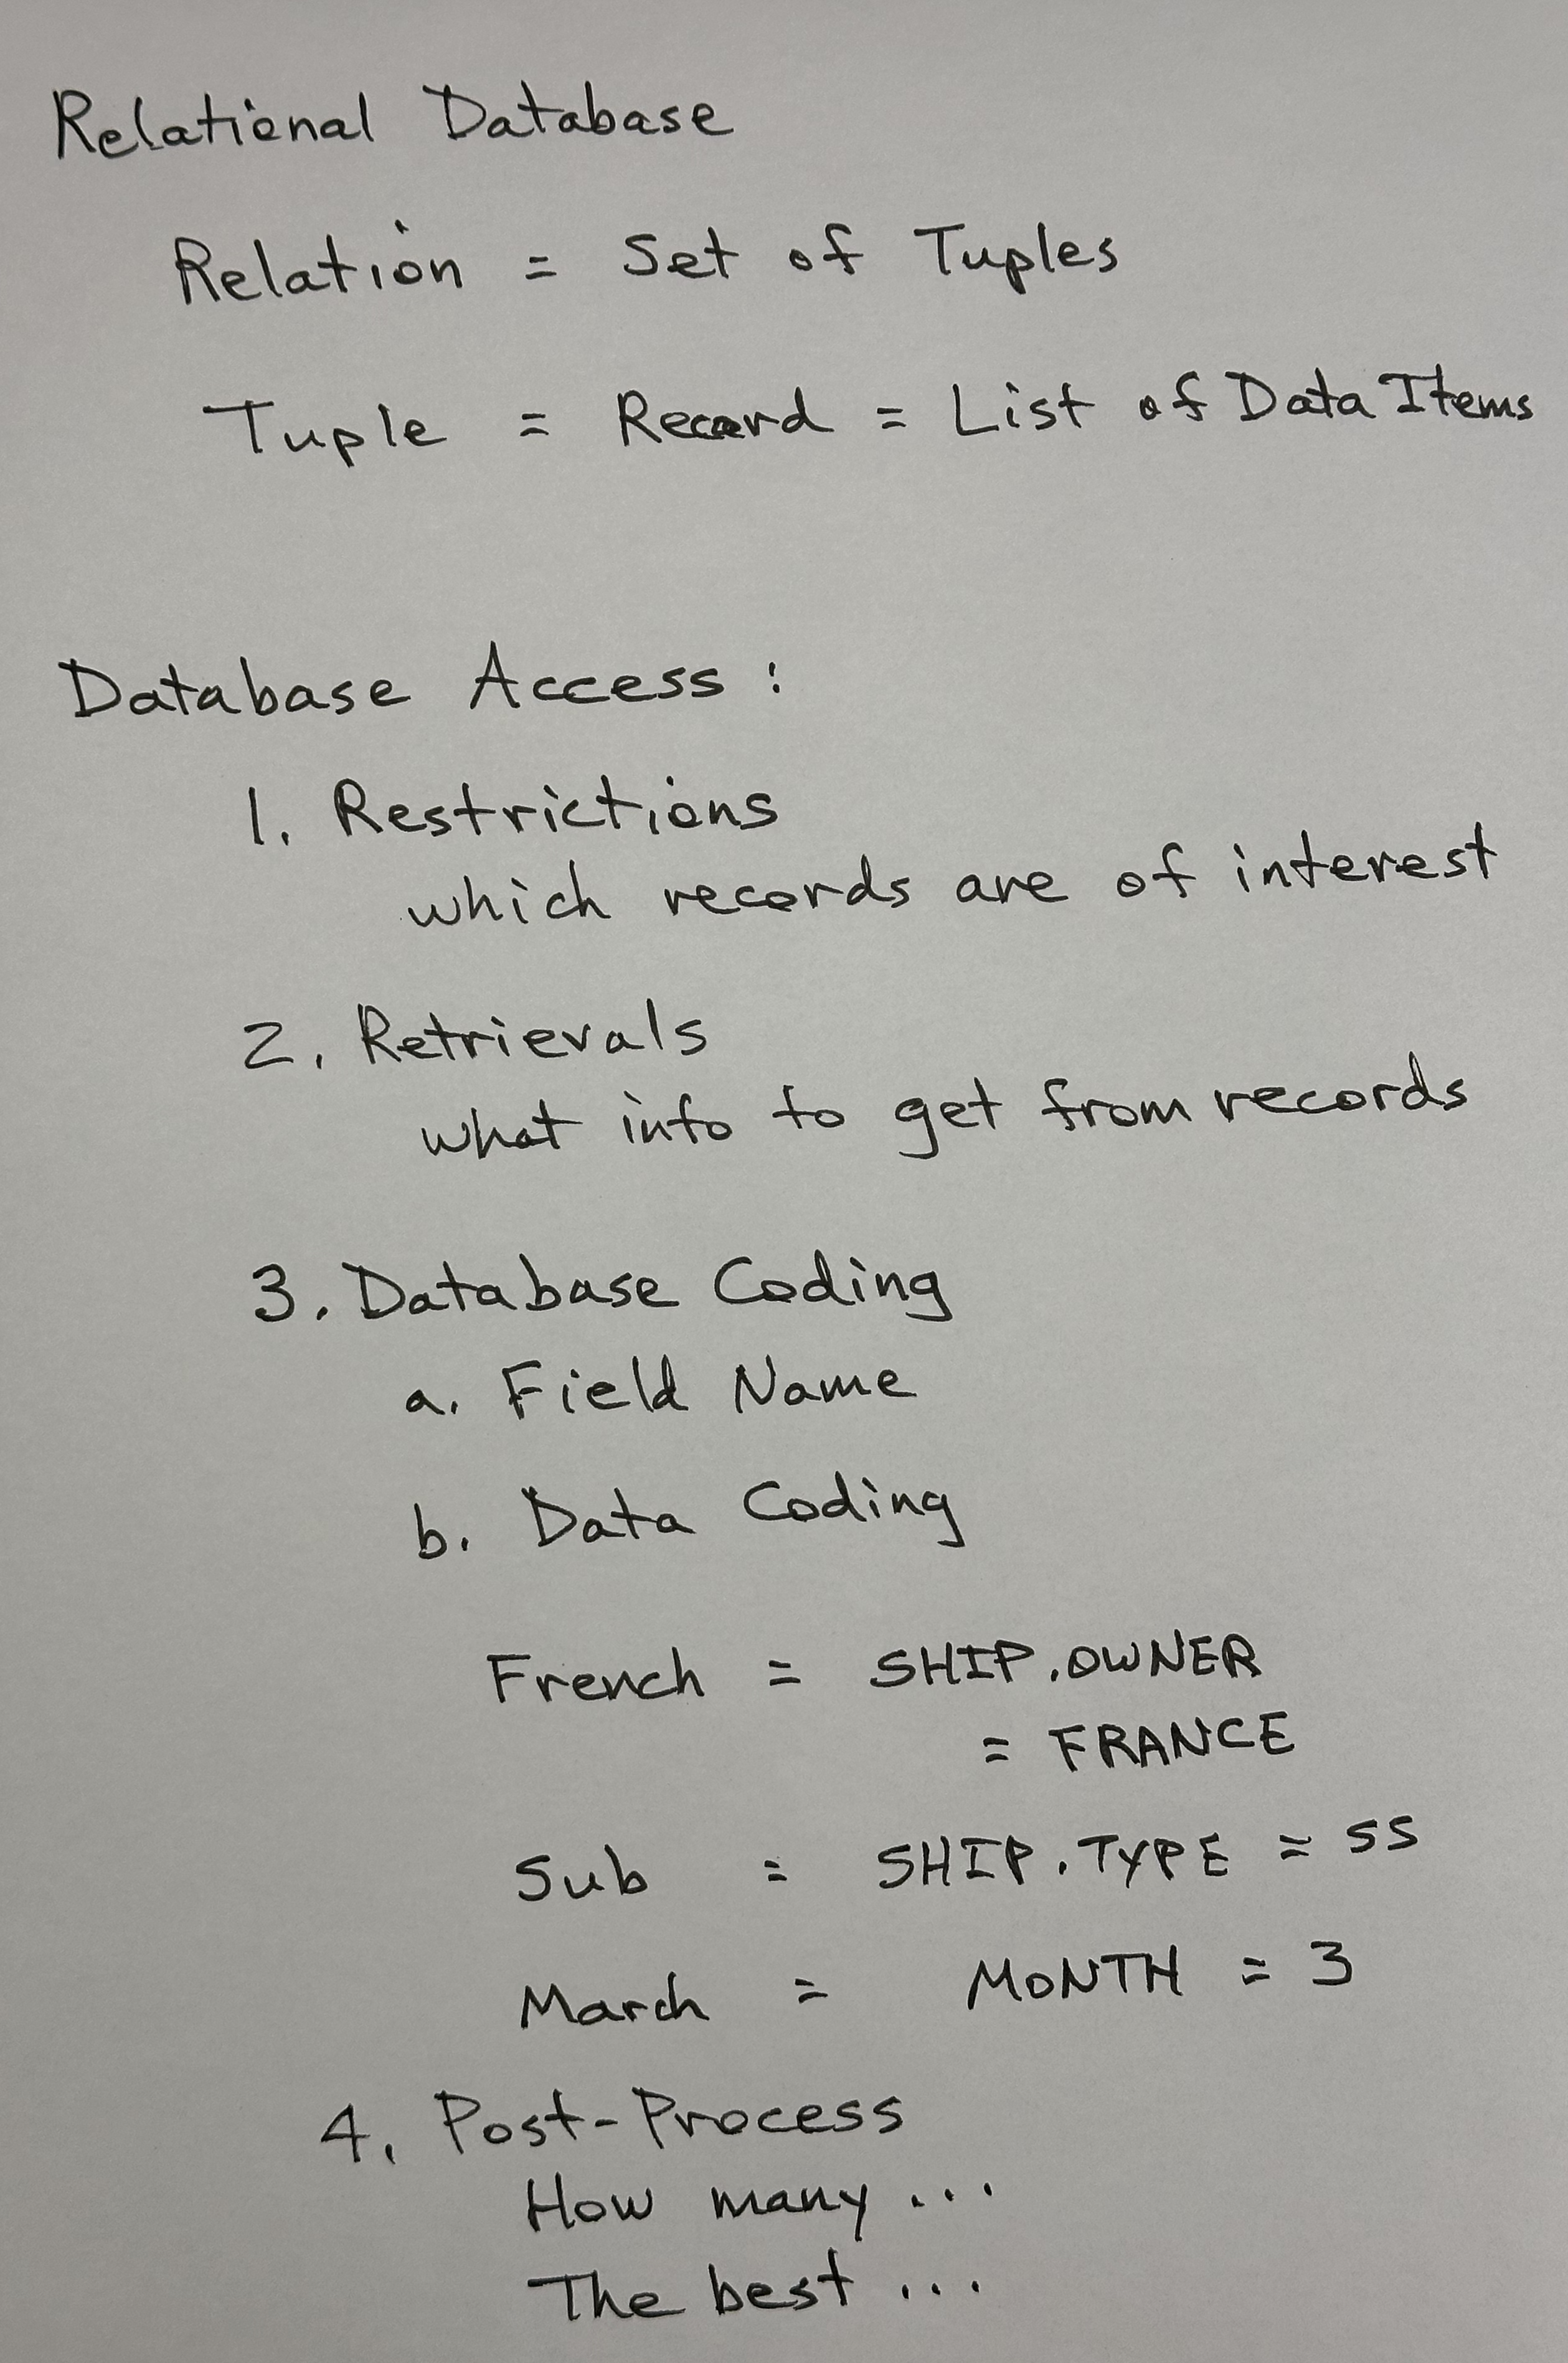 Relational Database
Relation = Set of Tuples
Tuple = Record = List of Data Items
Database Access :
1. Restrictions
which records are of interest
2. Retrievals
what info to get from records
3. Database Coding
a. Field Name
b. Data Coding
French = SHIP.OWNER
= FRANCE
Sub = SHIP.TYPE = SS
March = MONTH = 3
4. Post-Process
How many ...
The best ...